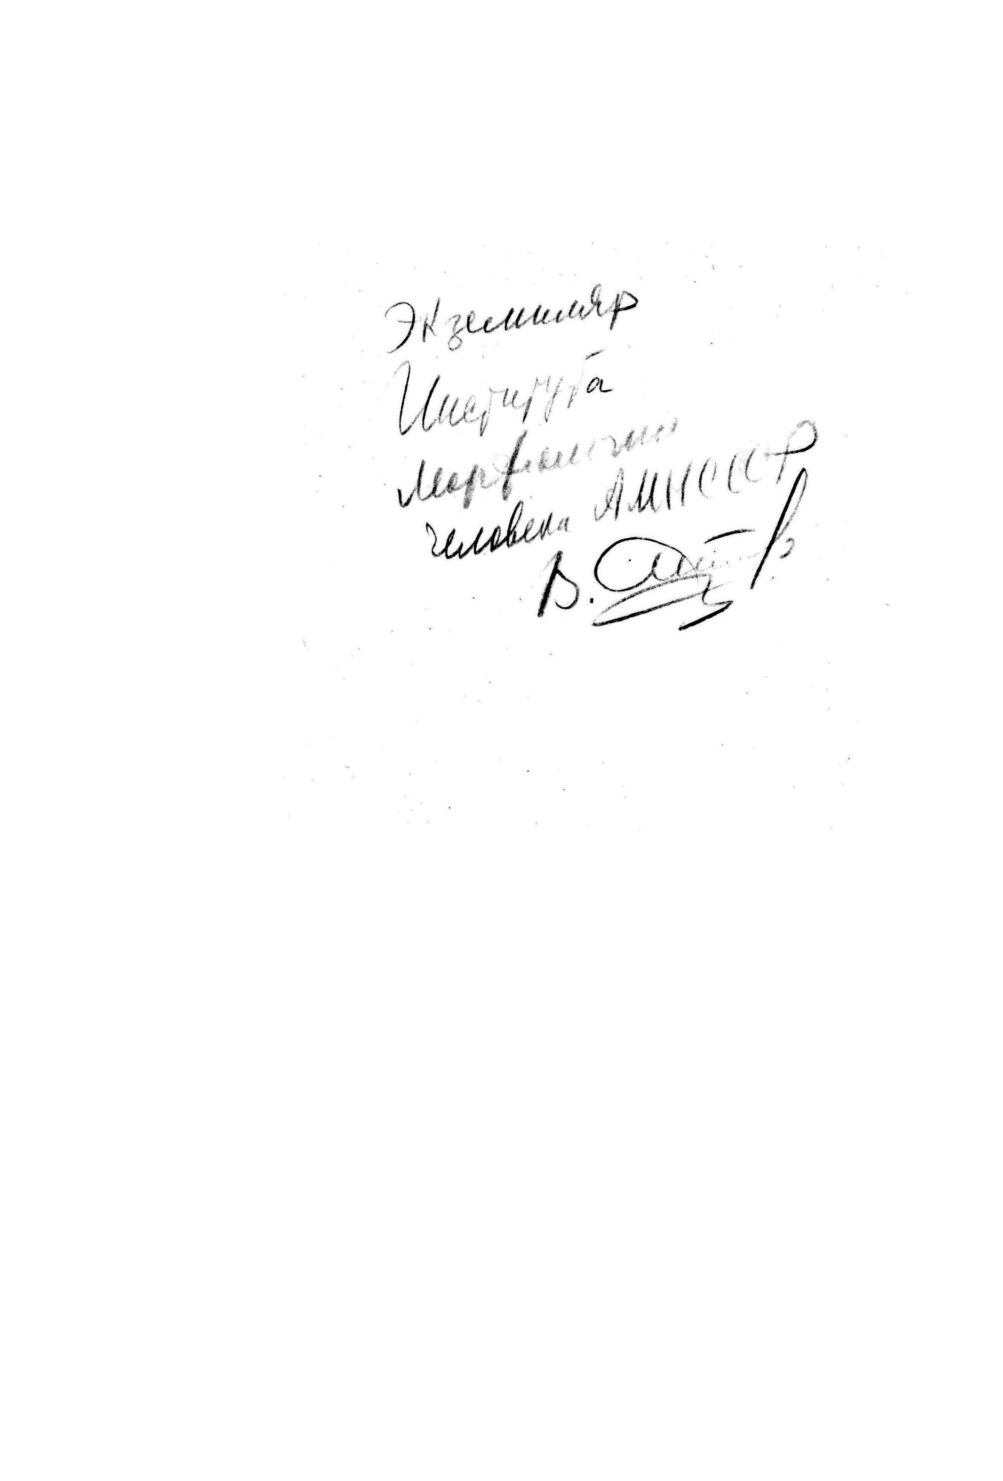 Экземпляр
Института
Морфологии
человека АМН СССР
В.